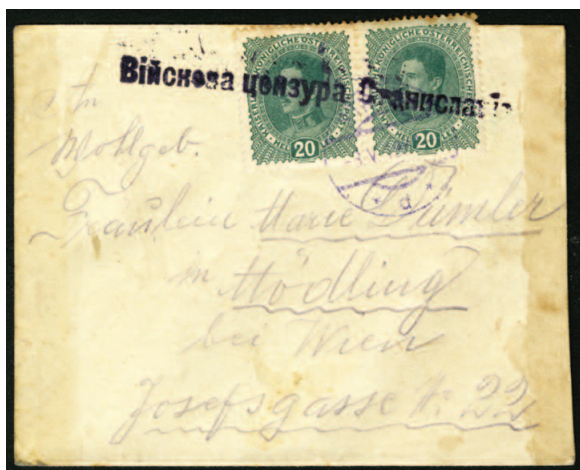 Війскова цензура Станиславів
20 20
d
An
Wohlgeb.
Fräulein Marie Dümler
in Mödling
bei Wien
Josefsgasse No 22